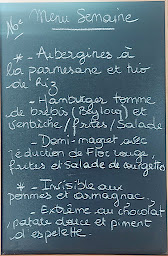 N°2
Menu Semaine
* - Aubergines à
la parmesane et trio
de Riz
- Hamburger tomme
de brebis (Béglous) et
ventrèche / frites / Salade
- Demi-magret avec
réduction de Floc rouge,
frites et Salade de courgettes
* - Invisible aux
pommes et armagnac,
- Extrême au chocolat,
patate douce et piment
d'espelette